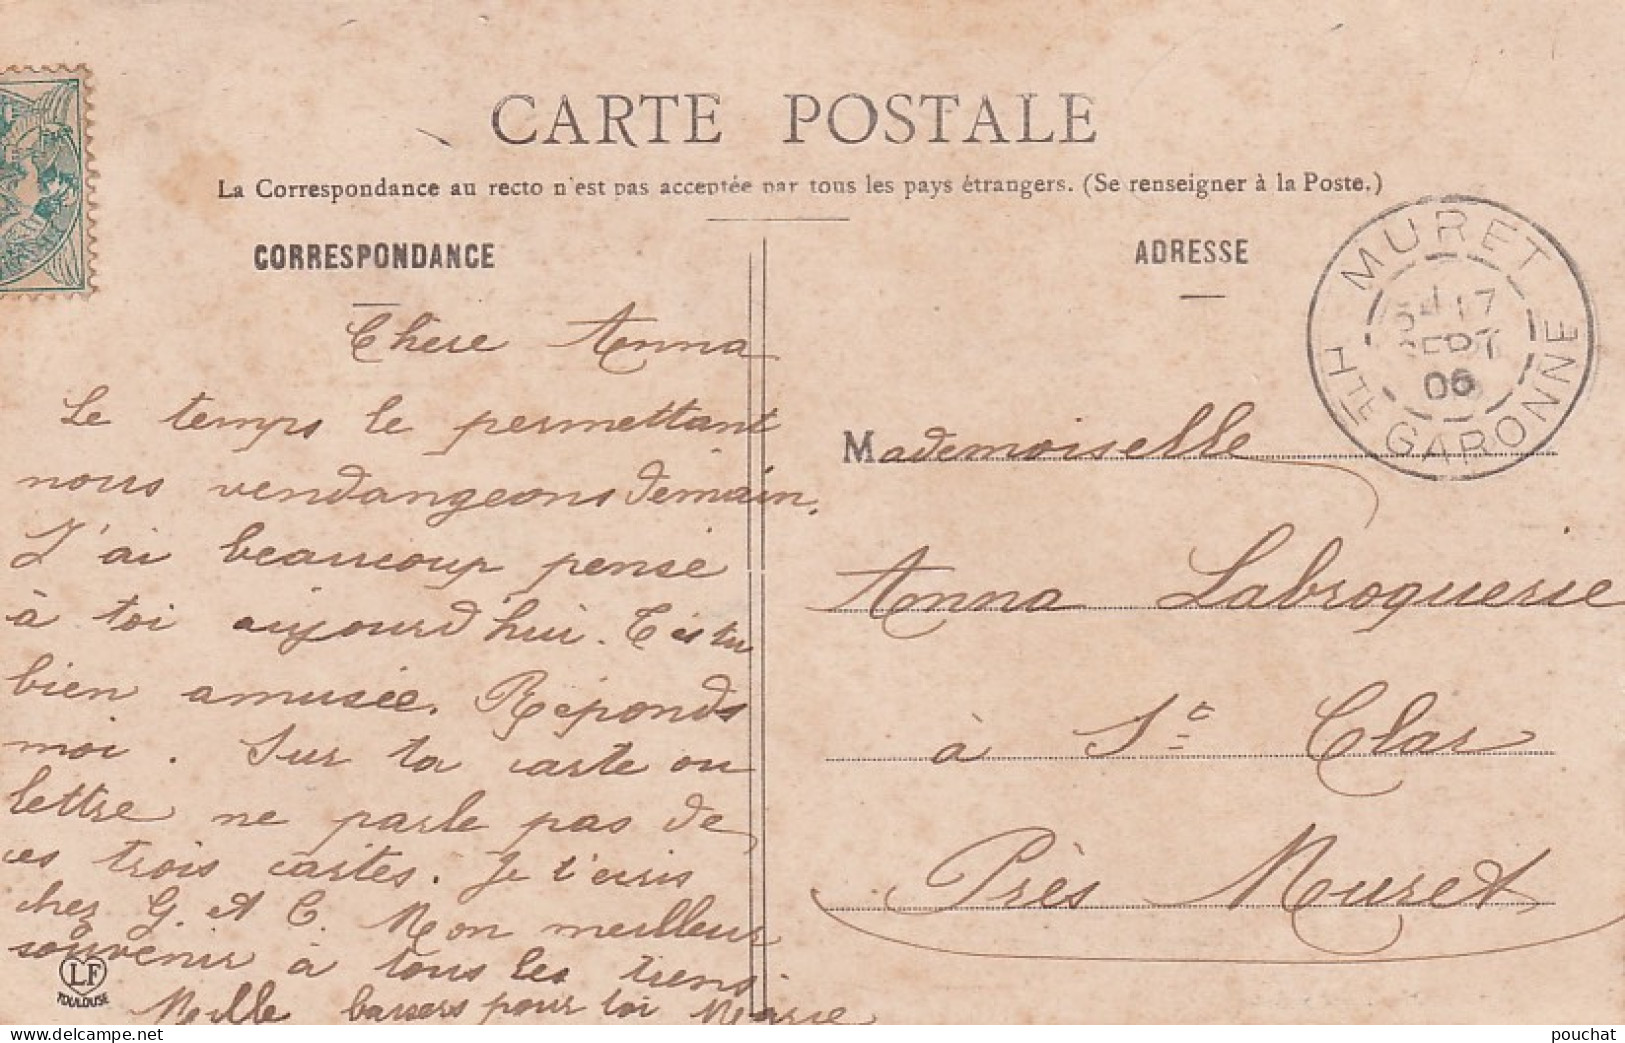 CARTE POSTALE
La Correspondance au recto n'est pas acceptée par tous les pays étrangers. (Se renseigner à la Poste.)
CORRESPONDANCE
Chère Anna
Le temps le permettant
nous vendangeons demain.
J'ai beaucoup pensé
à toi aujourd'hui. T'es tu
bien amusée. Réponds
moi. Sur ta carte ou
lettre ne parle pas de
ces trois cartes. Je t'écris
chez G. et C. Mon meilleur
souvenir à tous les tiens
Mille baisers pour toi Marie
LF
TOULOUSE
ADRESSE
MURET
17
SEPT
06
HTE GARONNE
Mademoiselle
Anna Labroquerie
à St Clar
Près Muret
pouchat